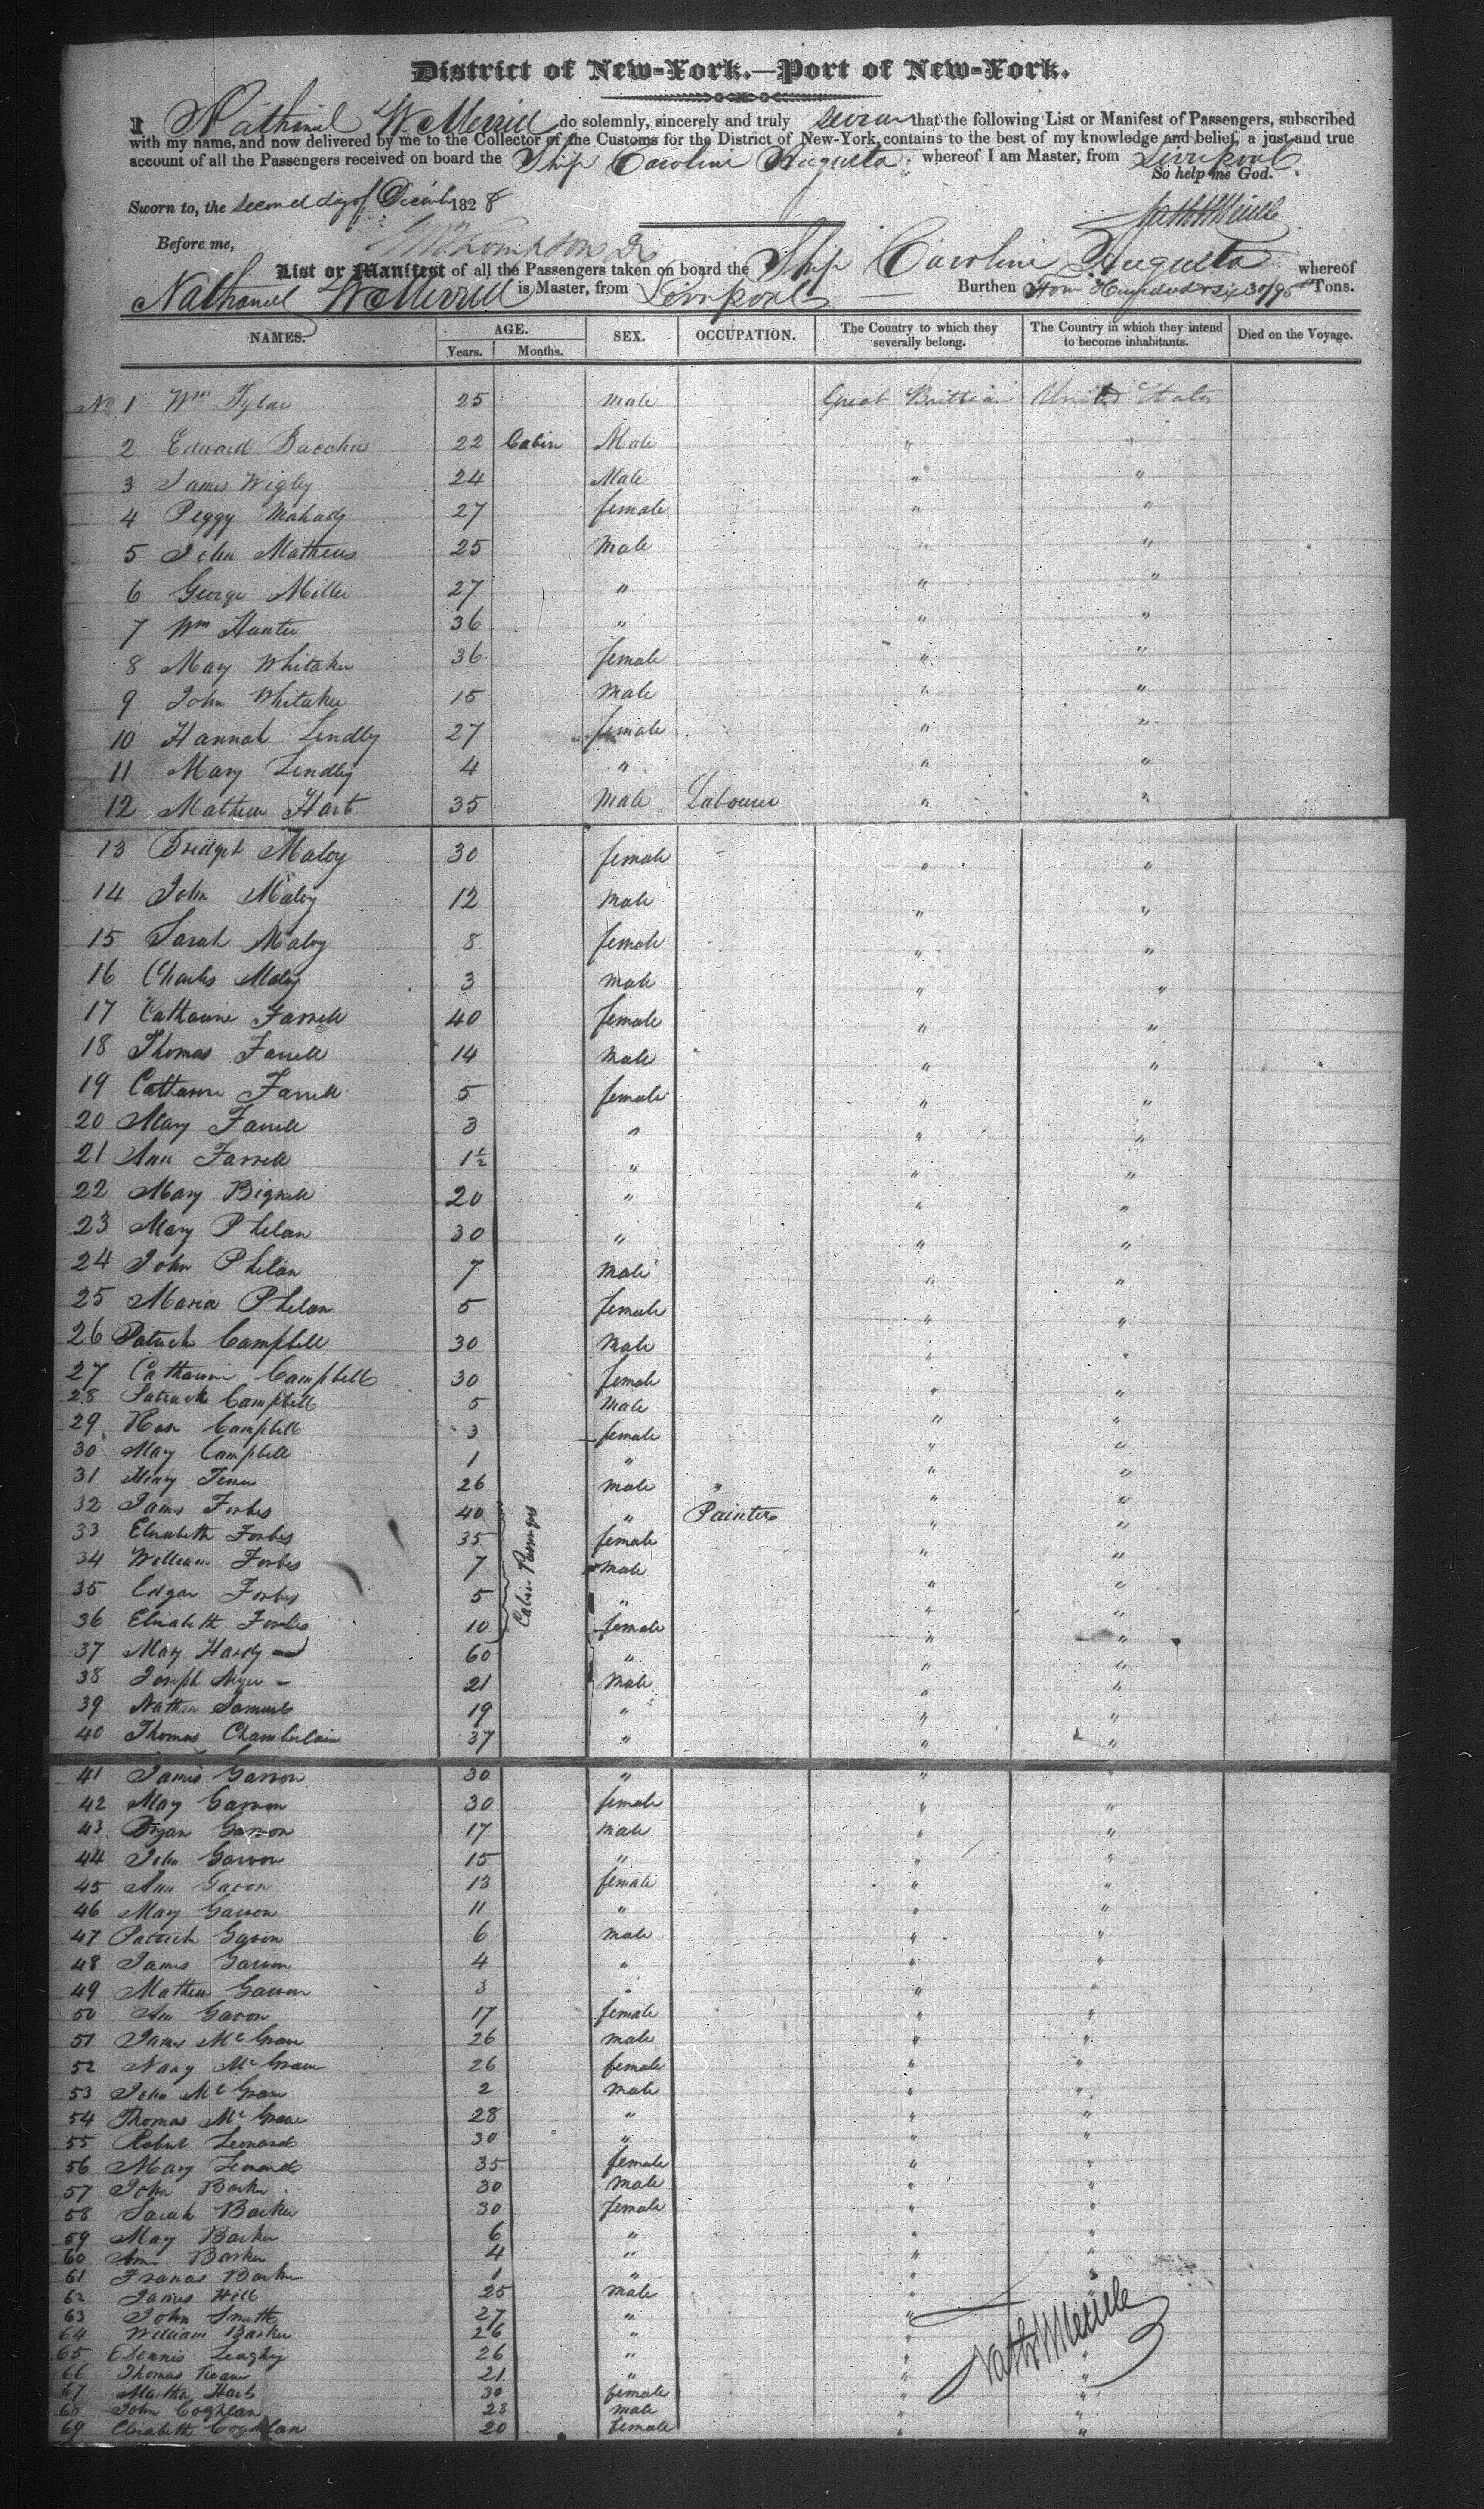 District of New-York.—Port of New-York.
I Nathaniel W Merrill do solemnly, sincerely and truly swear that the following List or Manifest of Passengers, subscribed
with my name, and now delivered by me to the Collector of the Customs for the District of New-York, contains to the best of my knowledge and belief, a just and true
account of all the Passengers received on board the Ship Caroline Augusta whereof I am Master, from Liverpool
So help me God.
Sworn to, the second day of Decembr 1828
Nath W Merrill
Before me,
List or Manifest of all the Passengers taken on board the Ship Caroline Augusta whereof
Nathaniel W Merrill is Master, from Liverpool Burthen Four Hundred & Six 30/95 Tons.
NAMES. AGE. Years. Months. SEX. OCCUPATION. The Country to which they severally belong. The Country in which they intend to become inhabitants. Died on the Voyage.
No 1 Wm Tylar 25 Male Great Brittian United States
2 Edward Bacchus 22 Cabin Male " "
3 James Wigley 24 Male " "
4 Peggy Mahady 27 female " "
5 John Mathews 25 Male " "
6 George Miller 27 " " "
7 Wm Hunter 36 " " "
8 Mary Whitaker 36 female " "
9 John Whitaker 15 Male " "
10 Hannah Lindley 27 female " "
11 Mary Lindley 4 " " "
12 Mathew Hart 35 Male Labourer " "
13 Bridget Maloy 30 female " "
14 John Maloy 12 Male " "
15 Sarah Maloy 8 female " "
16 Charles Maloy 3 Male " "
17 Catharine Farrell 40 female " "
18 Thomas Farrell 14 Male " "
19 Catharine Farrell 5 female " "
20 Mary Farrell 3 " " "
21 Ann Farrell 1½ " " "
22 Mary Bignell 20 " " "
23 Mary Phelan 30 " " "
24 John Phelan 7 Male " "
25 Maria Phelan 5 female " "
26 Patrick Campbell 30 Male " "
27 Catharine Campbell 30 female " "
28 Patrick Campbell 5 Male " "
29 Rose Campbell 3 female " "
30 Mary Campbell 1 " " "
31 Henry 26 Male " " "
32 James Forbes 40 " Painter " "
33 Elizabeth Forbes 35 female " "
34 William Forbes 7 Male " "
35 Edgar Forbes 5 Cabin Passengers " " "
36 Elizabeth Forbes 10 female " "
37 Mary Hardy 60 " " "
38 Joseph 21 Male " "
39 Nathan Samuels 19 " " "
40 Thomas Chamberlain 37 " " "
41 James Garron 30 " " "
42 Mary Garron 30 female " "
43 Bryan Garron 17 Male " "
44 John Garron 15 " " "
45 Ann Garron 13 female " "
46 Mary Garron 11 " " "
47 Patrick Garron 6 Male " "
48 James Garron 4 " " "
49 Mathew Garron 3 " " "
50 Ann Garron 17 female " "
51 James McGraw 26 Male " "
52 Nancy McGraw 26 female " "
53 John McGraw 2 Male " "
54 Thomas McGraw 28 " " "
55 Robert Leonard 30 " " "
56 Mary Leonard 35 female " "
57 John Barker 30 Male " "
58 Sarah Barker 30 female " "
59 Mary Barker 6 " " "
60 Ann Barker 4 " " "
61 Frances Barker 1 " " "
62 James Hill 25 Male " "
63 John Smith 27 " " "
64 William Barker 26 " " "
65 Dennis Leaghy 26 " " "
66 Thomas 21 " " "
67 Martha Hart 30 female " "
68 John Coghlan 28 Male " "
69 Elizabeth Coghlan 20 female " "
Nath W Merrill